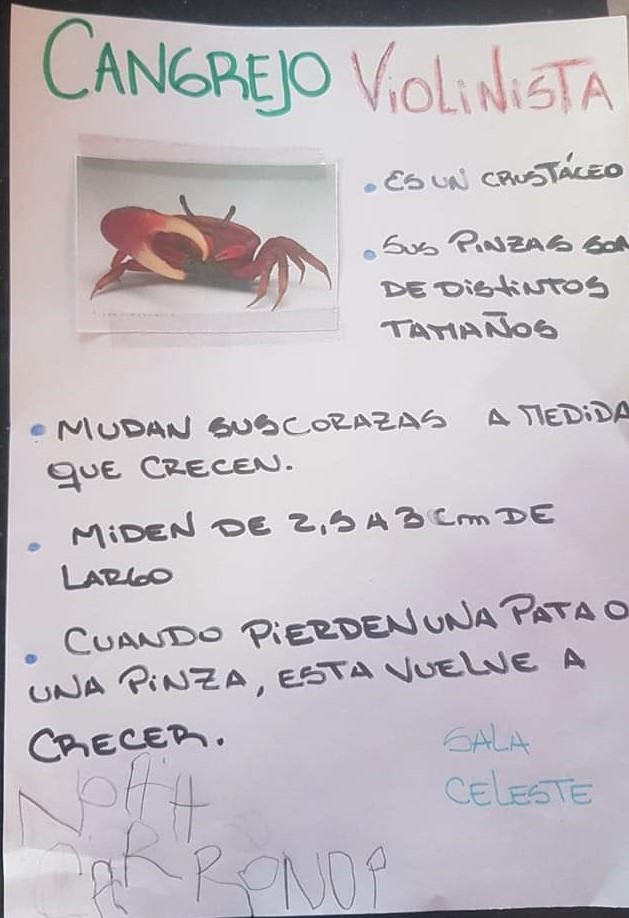 CANGREJO VIOLINISTA
• ES UN CRUSTÁCEO
• SUS PINZAS SON
DE DISTINTOS
TAMAÑOS
• MUDAN SUS CORAZAS A MEDIDA
QUE CRECEN.
• MIDEN DE 2,5 A 3 Cm DE
LARGO
• CUANDO PIERDEN UNA PATA O
UNA PINZA, ESTA VUELVE A
CRECER.
SALA
CELESTE
NOAH